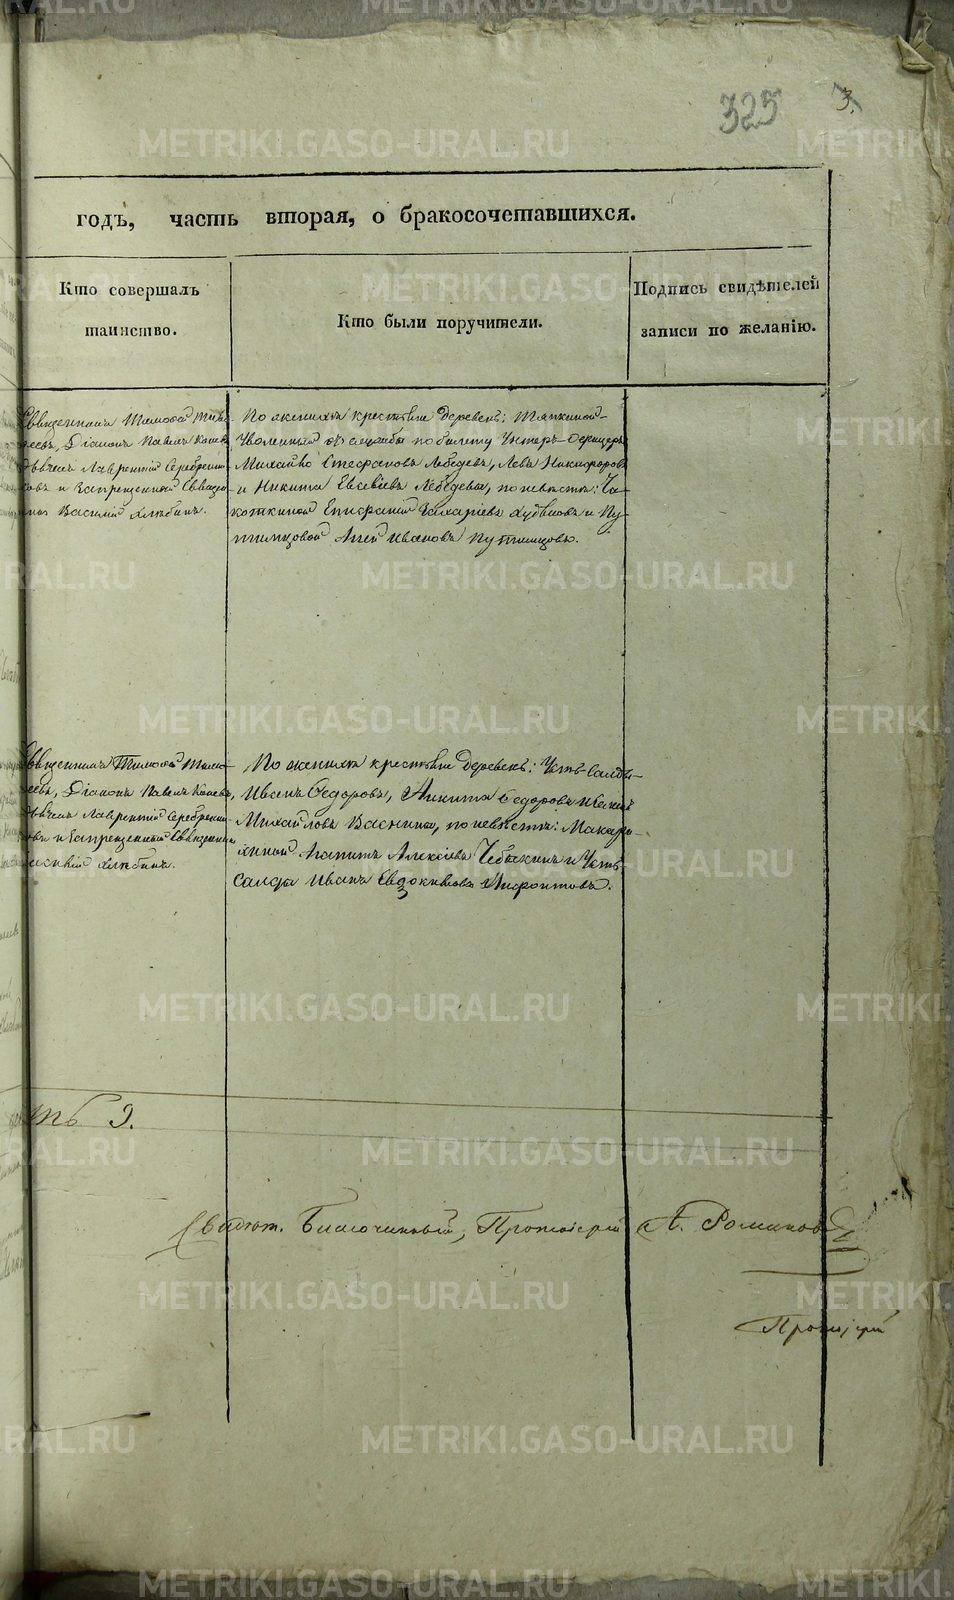 325
3.
годъ, часть вторая, о бракосочетавшихся.
Кто совершалъ
таинство.
Кто были поручители.
Подпись свидѣтелей
записи по желанію.
Священникъ Тимофей
Діаконъ Павелъ
Лаврентій Серебрени-
ковъ и Запрещенный Священ-
Василій Хлѣбинъ.
По женихѣ крестьяне деревень: Тяпкиной-
Уволенный отъ службы по билету Унтеръ-Офицеръ
Михайло Стефановъ Лебедевъ, Левъ Никифоровъ
и Никита Евсевіевъ Лебедевы, по невѣстѣ:
Епифаній Захаріевъ и Пу-
тимцовой Ивановъ Путимцовъ.
Священникъ Тимофей Тимо-
еевъ, Діаконъ Павелъ
Лаврентій Серебрени-
ковъ и Запрещенный Священникъ
Василій Хлѣбинъ.
По женихѣ крестьяне деревень: Усть-Салды-
Иванъ Федоровъ, Никита Федоровъ и
Михайловъ Васнины, по невѣстѣ: Макари-
хиной Агапитъ Алексіевъ Чебыкинъ и Усть-
Салды Иванъ Евдокимовъ
9.
Благочинный, Протоіерей А. Романов
Протоіерей
METRIKI.GASO-URAL.RU